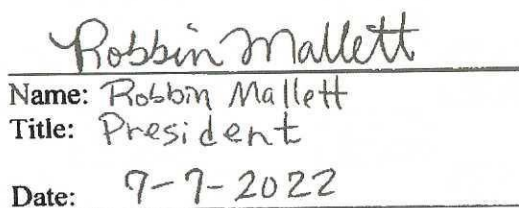 Robbin Mallett
Name: Robbin Mallett
Title: President
Date: 7-7-2022